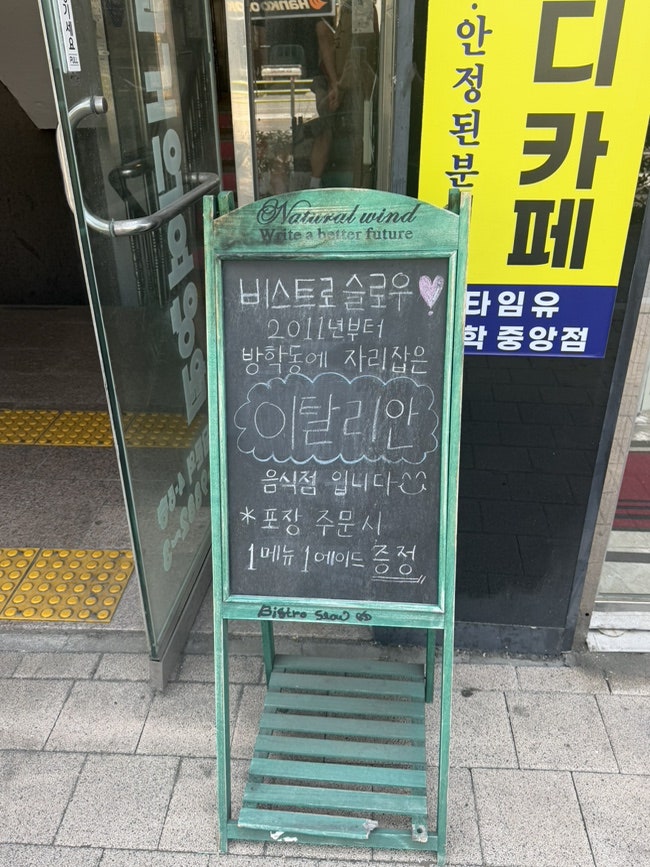 기세요
PULL
Hankook
·안정된분
디카페
타임유
학 중앙점
Natural wind
Write a better future
비스트로 슬로우
2011년부터
방학동에 자리잡은
이탈리안
음식점 입니다
*포장 주문시
1메뉴 1에이드 증정
Bistro Slow